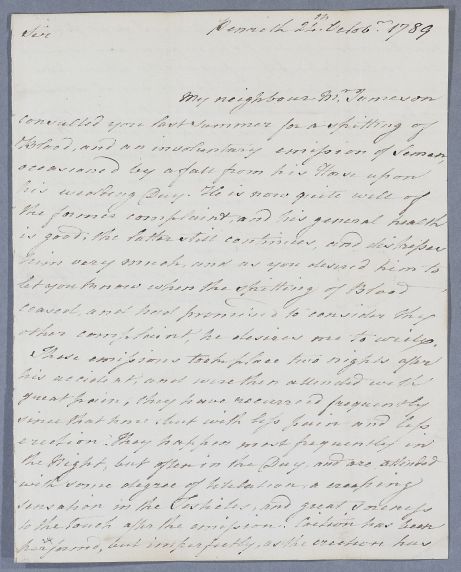 Sir Penrith 24th Octobr. 1789
My neighbour Mr. Jameson
consulted you last summer for a spitting of
Blood, and an involuntary emission of Semen,
occasioned by a fall from his Horse upon
his wedding Day. He is now quite well of
the former complaint, and his general health
is good; the latter still continues, and distresses
him very much, and as you desired him to
let you know when the spitting of Blood
ceased, and had promised to consider this
other complaint, he desires me to write.
These emissions took place two nights after
his accident, and were then attended with
great pain, they have recurred frequently
since that time, but with less pain and less
erection: They happen most frequently in
the Night, but often in the Day, and are attended
with some degree of titulation, a creeping
sensation in the Testicles, and great soreness
to the touch after the emission. Coition has been
performed, but imperfectly, as the erection has